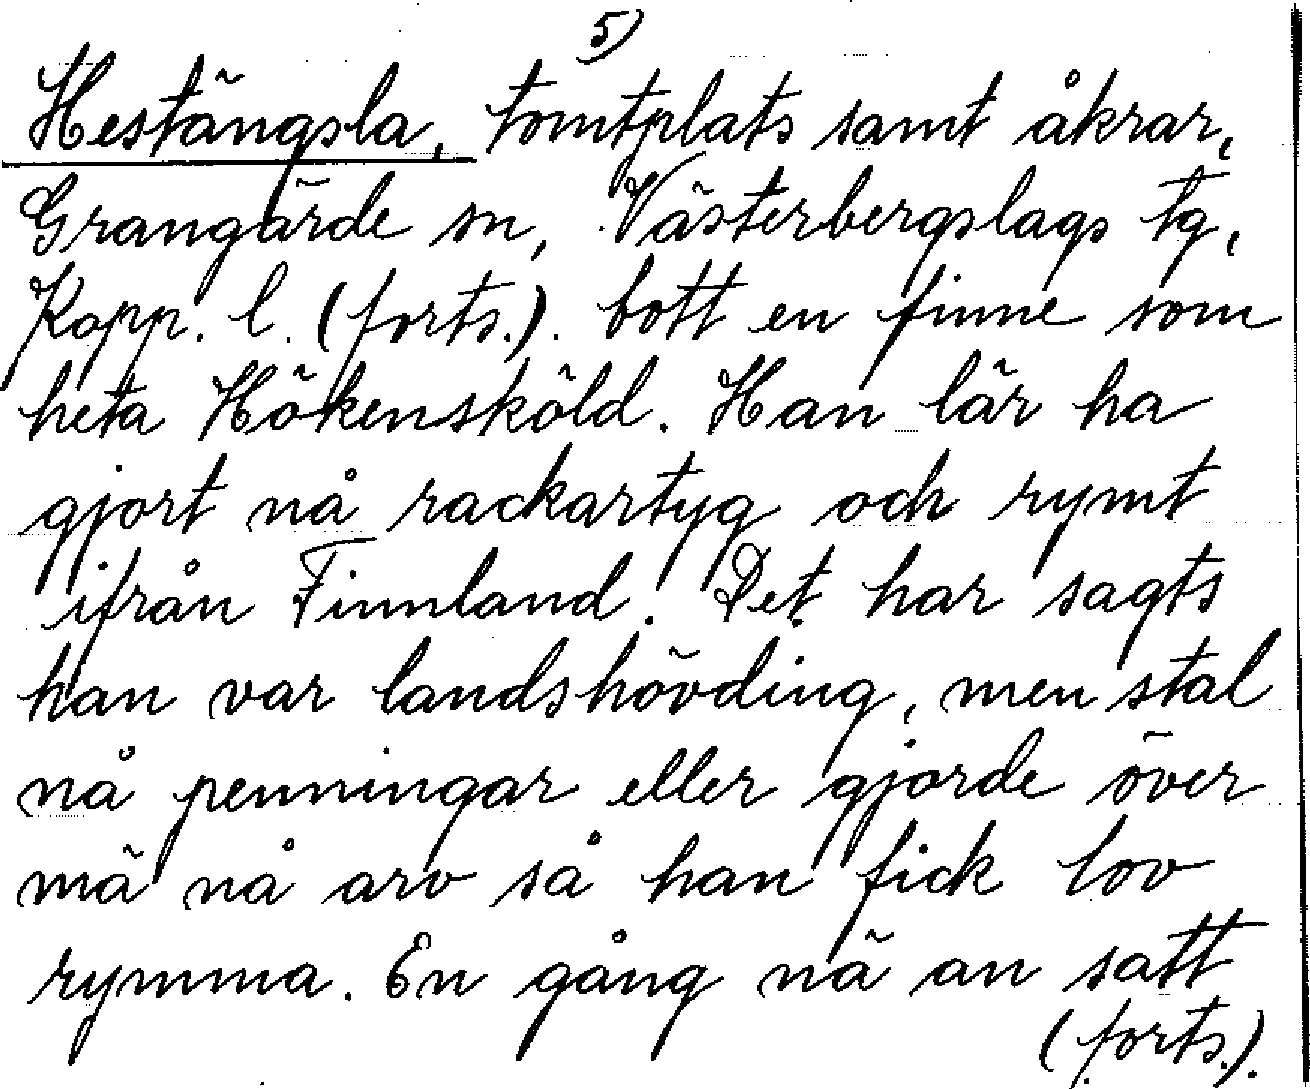 5)
Hestängsla, tomtplats samt åkrar,
Grangärde sn, Västerbergslags tg,
Kopp. l. (forts.). bott en finne som
heta Hökensköld. Han lär ha
gjort nå rackartyg och rymt
ifrån Finnland. Det har sagts
han var landshövding, men stal
nå penningar eller gjorde över
mä nå arv så han fick lov
rymma. En gång nä an satt
(forts.).